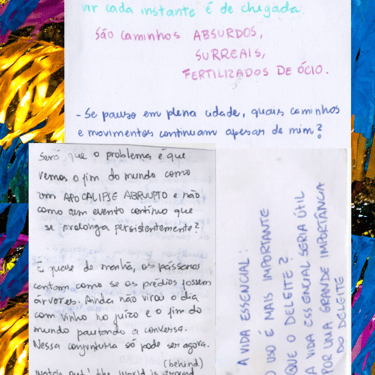 ar cada instante é de chegada.
São caminhos ABSURDOS,
SURREAIS,
FERTILIZADOS DE ÓCIO.
- Se pauso em plena cidade, quais caminhos
e movimentos continuam apesar de mim?
Será que o problema é que
vemos o fim do mundo como
um APOCALIPSE ABRUPTO e não
como um evento contínuo que
se prolonga persistentemente?
É quase de manhã, os pássaros
cantam como se os prédios fossem
árvores. Ainda não virou o dia
com vinho no juízo e o fim do
mundo pautando a conversa.
Nessa conjuntura só pode ser agora.
(behind)
watch out! the world is
A VIDA ESSENCIAL:
O USO É MAIS IMPORTANTE
QUE O DELEITE?
A VIDA ESSENCIAL SERIA ÚTIL
POR UMA GRANDE IMPORTÂNCIA
DO DELEITE